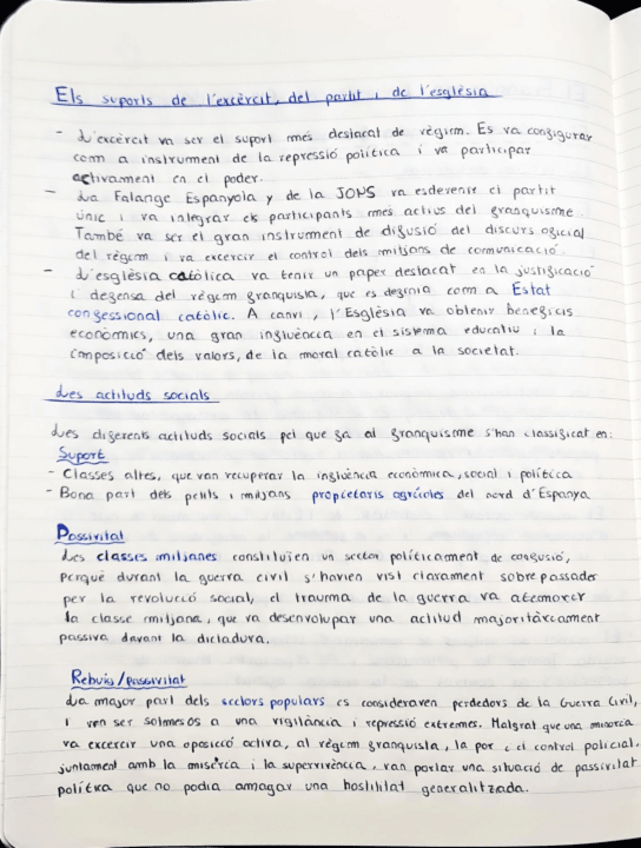 Els suports de l'excèrcit, del partit i de l'esglèsia
- L'excèrcit va ser el suport més destacat de règim. Es va configurar
com a instrument de la repressió política i va participar
activament en el poder.
- La Falange Espanyola y de la JONS va esdevenir el partit
únic i va integrar els participants més actius del franquisme.
També va ser el gran instrument de difusió del discurs oficial
del règim i va excercir el control dels mitjans de comunicació.
- L'esglèsia catòlica va tenir un paper destacat en la justificació
i defensa del règim franquista, que es definia com a Estat
confessional catòlic. A canvi, l'Esglèsia va obtenir beneficis
econòmics, una gran influència en el sistema educatiu i la
imposició dels valors, de la moral catòlic a la societat.
Les actituds socials
Les diferents actituds socials pel que fa al franquisme s'han classificat en:
Suport
- Classes altes, que van recuperar la influència econòmica, social i política
- Bona part dels petits i mitjans propietaris agrícoles del nord d'Espanya
Passivitat
Les classes mitjanes constituïen un sector políticament de confusió,
perquè durant la guerra civil s'havien vist clarament sobrepassader
per la revolució social, el trauma de la guerra va atemorir
la classe mitjana, que va desenvolupar una actitud majoritàreament
passiva davant la dictadura.
Rebuig/passivitat
La major part dels sectors populars es consideraven perdedors de la Guerra Civil,
i van ser sotmesos a una vigilància i repressió extremes. Malgrat que una minoria
va excercir una oposicció activa, al règim franquista, la por i el control policial,
juntament amb la misèria i la supervivència, van portar una situació de passivitat
política que no podia amagar una hostilitat generalitzada.